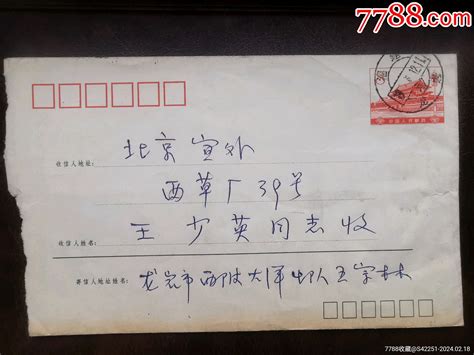 7788.com
收信人地址:
北京宣外
西草厂39号
王少英同志收
收信人姓名:
寄信人地址姓名:
龙岩市西陂大洋
7788收藏@S42251-2024.02.18